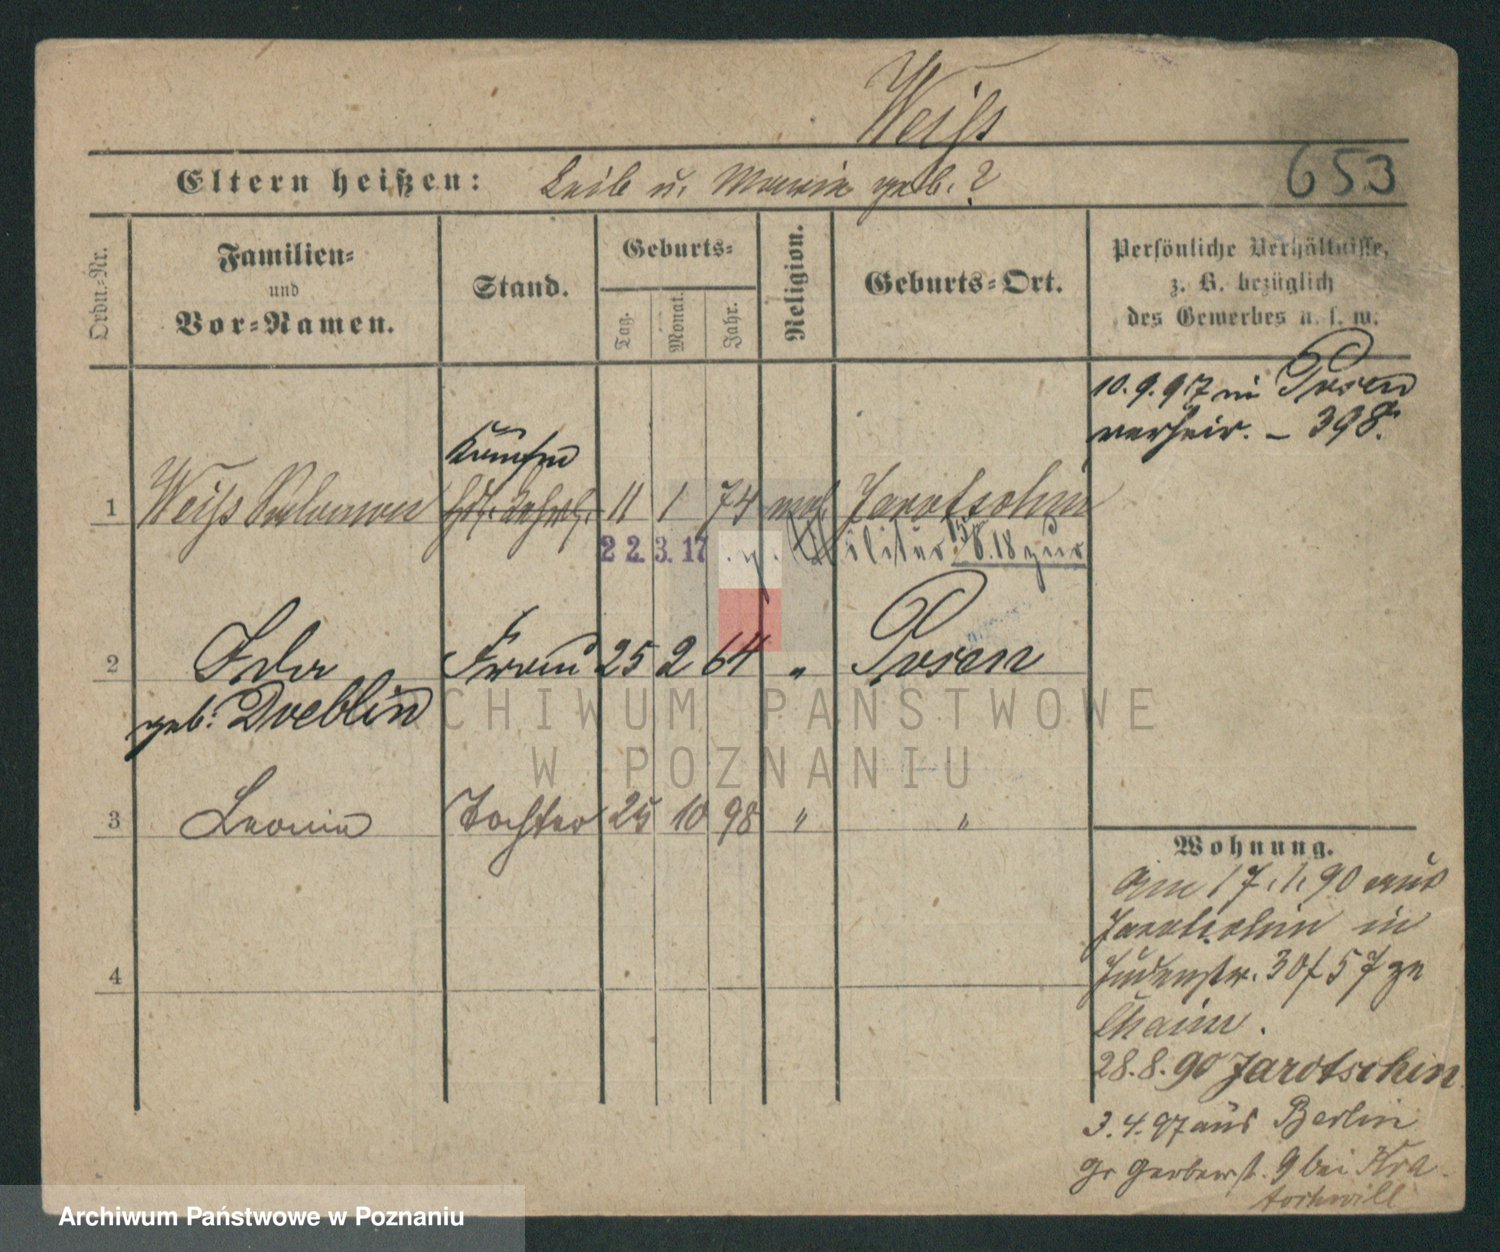 Weiß
653
Eltern heißen: Leib u. Marie geb. ?
Ordn.-Nr.
Familien-
und
Vor-Namen.
Stand.
Geburts-
Tag.
Monat.
Jahr.
Religion.
Geburts-Ort.
Persönliche Verhältnisse,
z. B. bezüglich
des Gewerbes u. s. w.
10.9.97 in Posen
verheir. – 398.
Kaufm
1 Weiß Salomon 11 1 74 mos. Jarotschin
22.3.17 z. Militär 15/6.18 zur
2 Ida Frau 25 2 64 " Posen
geb. Doeblin
3 Leonie Tochter 25 10 98 " "
4
Wohnung.
Am 17.1.90 aus
Jarotschin in
Judenstr. 30 f 57 ze
Chaim.
28.8.90 Jarotschin
3.4.97 aus Berlin
gr Gerberst. 9 bei Kra
tochwill
ARCHIWUM PAŃSTWOWE
W POZNANIU
Archiwum Państwowe w Poznaniu